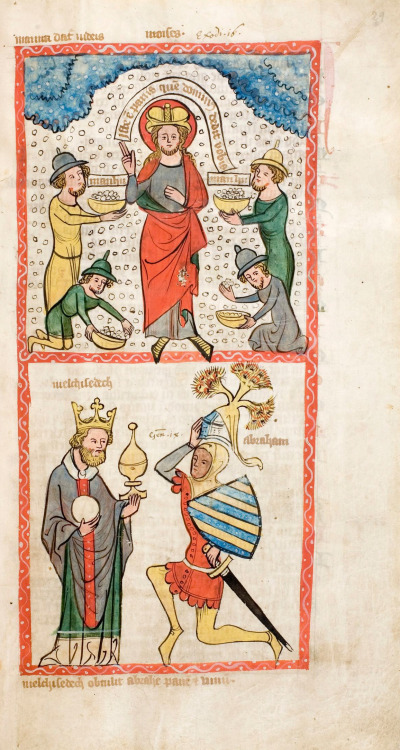 manna dat' iudeis moises. Exodi. 16.
39
iste ē panis quē domin' dedit vobis
manhu
manhu
melchisedech
Gen. ix
abraham
melchisedech obtulit abrahe panē & vinū.